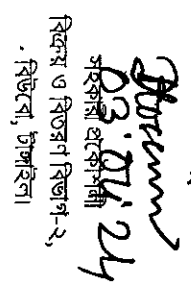 03.04.24
সহকারী প্রকৌশলী
বিক্রয় ও বিতরণ বিভাগ-২,
বিউবো, টাঙ্গাইল।